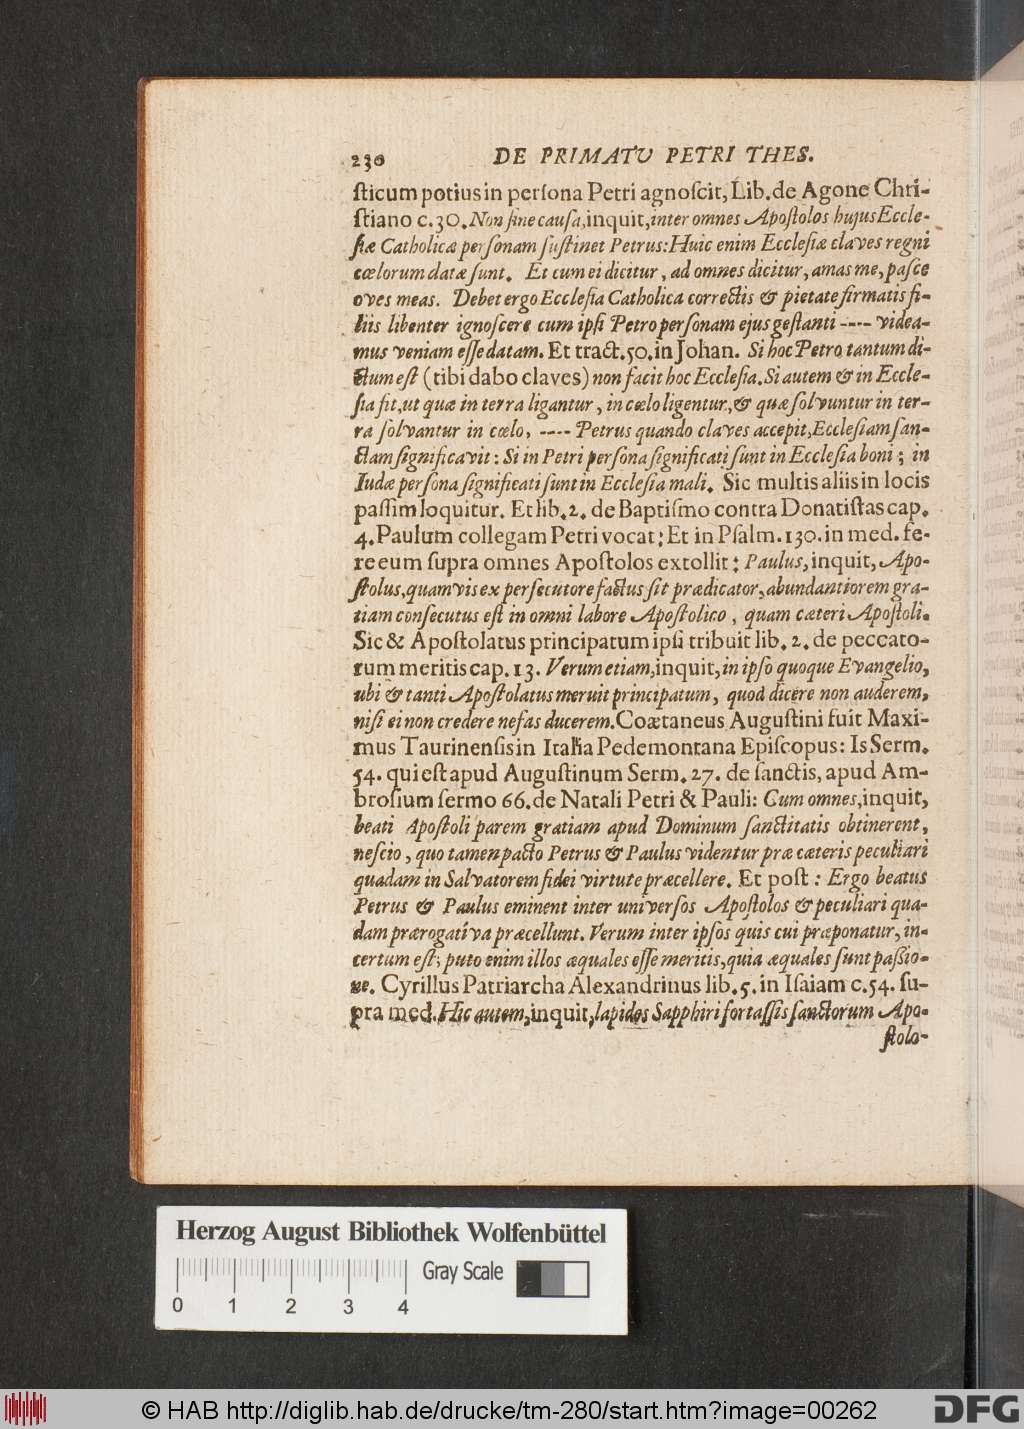 230 DE PRIMATU PETRI THES.
ſticum potius in perſona Petri agnoſcit, Lib. de Agone Chri-
ſtiano c. 30. Non ſine cauſa, inquit, inter omnes Apoſtolos hujus Eccle-
ſiæ Catholicæ perſonam ſuſtinet Petrus: Huic enim Eccleſiæ claves regni
cœlorum datæ ſunt. Et cum ei dicitur, ad omnes dicitur, amas me, paſce
oves meas. Debet ergo Eccleſia Catholica correctis & pietate firmatis fi-
liis libenter ignoſcere cum ipſi Petro perſonam ejus geſtanti ---- videa-
mus veniam eſſe datam. Et tract. 50. in Johan. Si hoc Petro tantum di-
ctum eſt (tibi dabo claves) non facit hoc Eccleſia. Si autem & in Eccle-
ſia fit, ut quæ in terra ligantur, in cœlo ligentur, & quæ ſolvuntur in ter-
ra ſolvantur in cœlo, ---- Petrus quando claves accepit, Eccleſiam ſan-
ctam ſignificavit: Si in Petri perſona ſignificati ſunt in Eccleſia boni; in
Iudæ perſona ſignificati ſunt in Eccleſia mali. Sic multis aliis in locis
paſſim loquitur. Et lib. 2. de Baptiſmo contra Donatiſtas cap.
4. Paulum collegam Petri vocat: Et in Pſalm. 130. in med. fe-
re eum ſupra omnes Apoſtolos extollit: Paulus, inquit, Apo-
ſtolus, quamvis ex perſecutore factus ſit prædicator, abundantiorem gra-
tiam conſecutus eſt in omni labore Apoſtolico, quam cæteri Apoſtoli.
Sic & Apoſtolatus principatum ipſi tribuit lib. 2. de peccato-
rum meritis cap. 13. Verum etiam, inquit, in ipſo quoque Evangelio,
ubi & tanti Apoſtolatus meruit principatum, quod dicere non auderem,
niſi ei non credere nefas ducerem. Coætaneus Auguſtini fuit Maxi-
mus Taurinenſis in Italia Pedemontana Epiſcopus: Is Serm.
54. qui eſt apud Auguſtinum Serm. 27. de ſanctis, apud Am-
broſium ſermo 66. de Natali Petri & Pauli: Cum omnes, inquit,
beati Apoſtoli parem gratiam apud Dominum ſanctitatis obtinerent,
neſcio, quo tamen pacto Petrus & Paulus videntur præ cæteris peculiari
quadam in Salvatorem fidei virtute præcellere. Et poſt: Ergo beatus
Petrus & Paulus eminent inter univerſos Apoſtolos & peculiari qua-
dam prærogativa præcellunt. Verum inter ipſos quis cui præponatur, in-
certum eſt; puto enim illos æquales eſſe meritis, quia æquales ſunt paſſio-
ne. Cyrillus Patriarcha Alexandrinus lib. 5. in Iſaiam c. 54. ſu-
pra med. Hic autem, inquit, lapides Sapphiri fortaſſis ſanctorum Apo-
ſtolo-
Herzog August Bibliothek Wolfenbüttel
Gray Scale
0 1 2 3 4
© HAB http://diglib.hab.de/drucke/tm-280/start.htm?image=00262
DFG